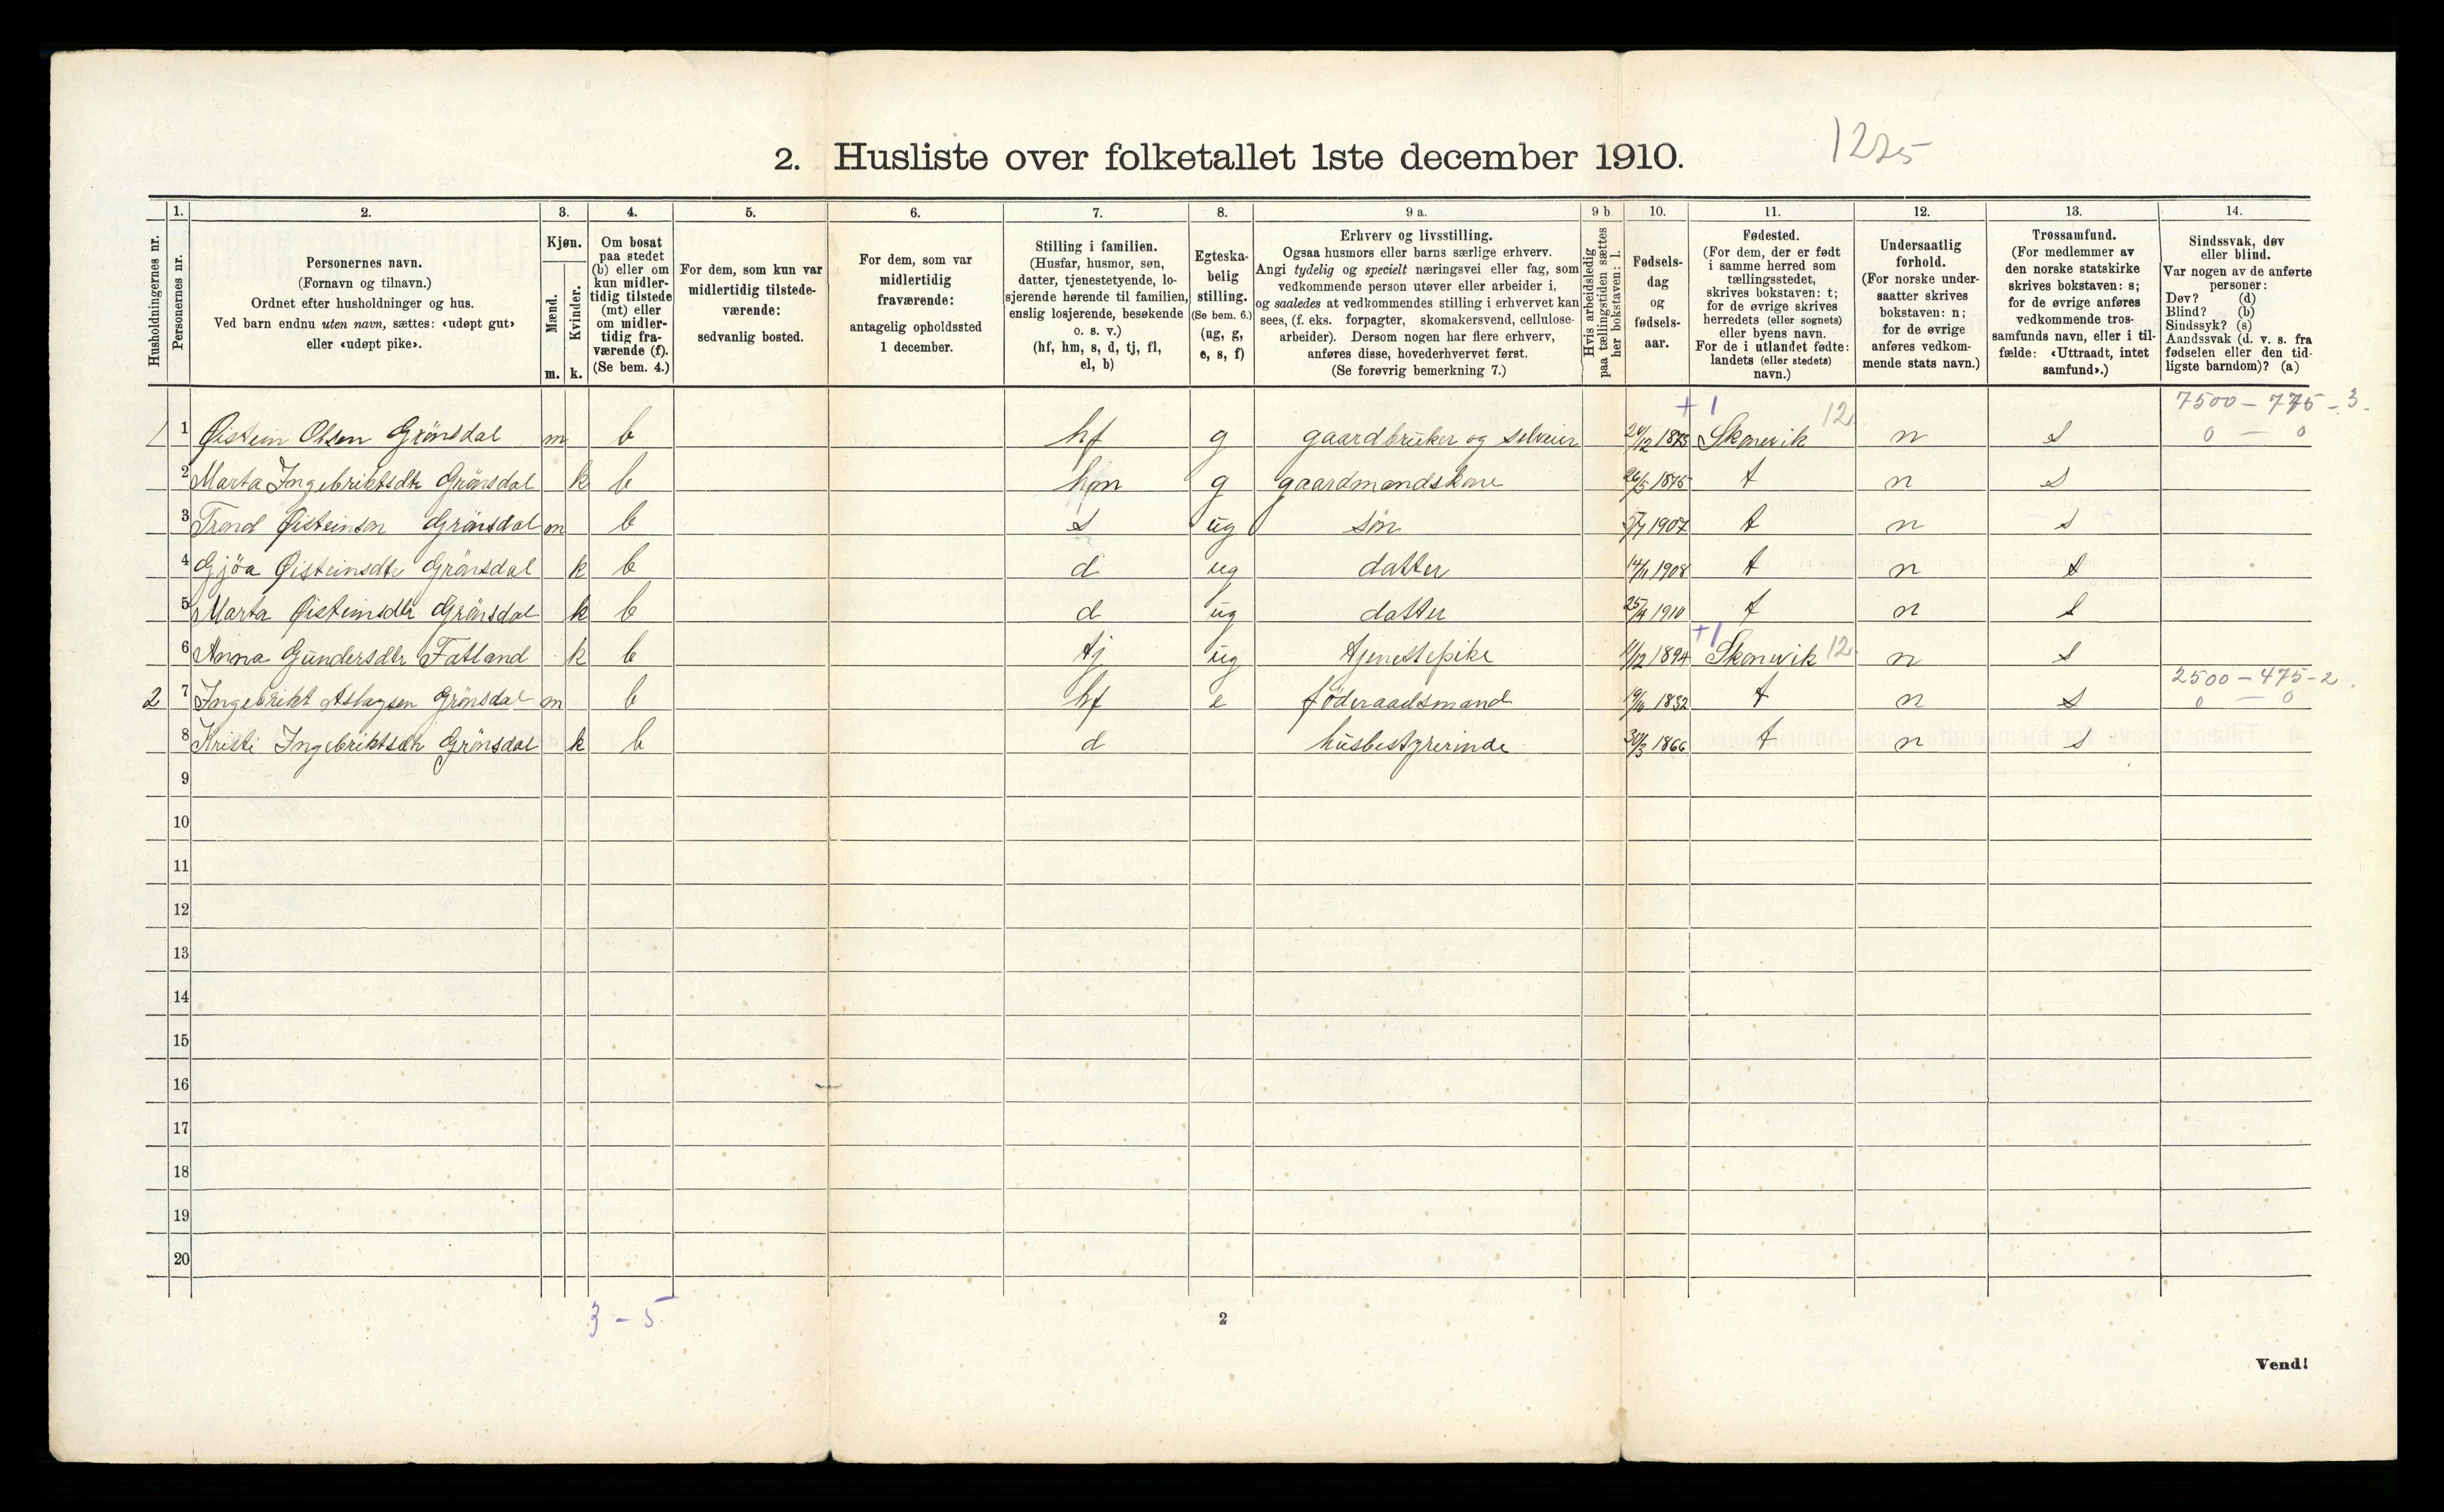 2. Husliste over folketallet 1ste december 1910.
1225
Husholdningernes nr.
1. Personernes nr.
2. Personernes navn.
(Fornavn og tilnavn.)
Ordnet efter husholdninger og hus.
Ved barn endnu uten navn, sættes: «udøpt gut»
eller «udøpt pike».
3. Kjøn.
Mænd. m.
Kvinder. k.
4. Om bosat
paa stedet
(b) eller om
kun midler-
tidig tilstede
(mt) eller
om midler-
tidig fra-
værende (f).
(Se bem. 4.)
5. For dem, som kun var
midlertidig tilstede-
værende:
sedvanlig bosted.
6. For dem, som var
midlertidig
fraværende:
antagelig opholdssted
1 december.
7. Stilling i familien.
(Husfar, husmor, søn,
datter, tjenestetyende, lo-
sjerende hørende til familien,
enslig losjerende, besøkende
o. s. v.)
(hf, hm, s, d, tj, fl,
el, b)
8. Egteska-
belig
stilling.
(Se bem. 6.)
(ug, g,
e, s, f)
9 a. Erhverv og livsstilling.
Ogsaa husmors eller barns særlige erhverv.
Angi tydelig og specielt næringsvei eller fag, som
vedkommende person utøver eller arbeider i,
og saaledes at vedkommendes stilling i erhvervet kan
sees, (f. eks. forpagter, skomakersvend, cellulose-
arbeider). Dersom nogen har flere erhverv,
anføres disse, hovederhvervet først.
(Se forøvrig bemerkning 7.)
9 b Hvis arbeidsledig
paa tællingstiden sættes
her bokstaven: l.
10. Fødsels-
dag
og
fødsels-
aar.
11. Fødested.
(For dem, der er født
i samme herred som
tællingsstedet,
skrives bokstaven: t;
for de øvrige skrives
herredets (eller sognets)
eller byens navn.
For de i utlandet fødte:
landets (eller stedets)
navn.)
12. Undersaatlig
forhold.
(For norske under-
saatter skrives
bokstaven: n;
for de øvrige
anføres vedkom-
mende stats navn.)
13. Trossamfund.
(For medlemmer av
den norske statskirke
skrives bokstaven: s;
for de øvrige anføres
vedkommende tros-
samfunds navn, eller i til-
fælde: «Uttraadt, intet
samfund».)
14. Sindssvak, døv
eller blind.
Var nogen av de anførte
personer:
Døv? (d)
Blind? (b)
Sindssyk? (s)
Aandssvak (d. v. s. fra
fødselen eller den tid-
ligste barndom)? (a)
+ 1 12 7500 - 775 - 3.
1 1 Øistein Olsen Grönsdal m b hf g gaardbruker og selveier 12 1873 Skonevik n s 0 - 0
2 Marta Ingebriktsdtr Grönsdal k b hm g gaardmandskone 26/5 1875 t n s
3 Trond Øisteinson Grönsdal m b s ug sön 5/7 1907 t n s
4 Gjöa Øisteinsdtr Grönsdal k b d ug datter 1908 t n s
5 Marta Øisteinsdtr Grönsdal k b d ug datter 25/4 1910 t n s
+1
6 Anna Gundersdtr Fatland k b tj ug tjenestepike 11/12 1894 Skonevik 12 n s
2500 - 475 - 2.
2 7 Ingebrikt Aslagsen Grönsdal m b hf e föderaadsmand 1832 t n s 0 - 0
8 Kristi Ingebriktsdtr Grönsdal k b d husbestyrerinde 30/3 1866 t n s
9
10
11
12
13
14
15
16
17
18
19
20
3 - 5
2
Vend!